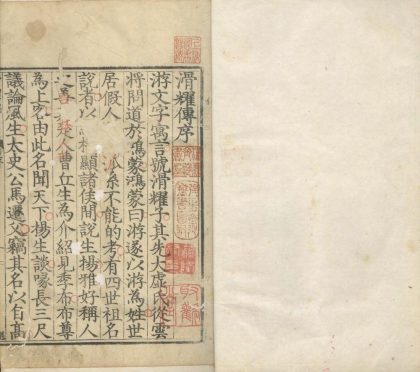 滑耀傳序
游文字寓言號滑耀子其先大虛氏從雲
將問道於鴻蒙鴻蒙曰游遂以游為姓世
居假人派系不能的考有四世祖名
說者以顯諸侯間說生揚雅好稱人
之善楚人曹丘生為介紹見季布布尊
為上客由此名聞天下揚生談喙長三尺
議論風生太史公馬遷文竊其名以自高